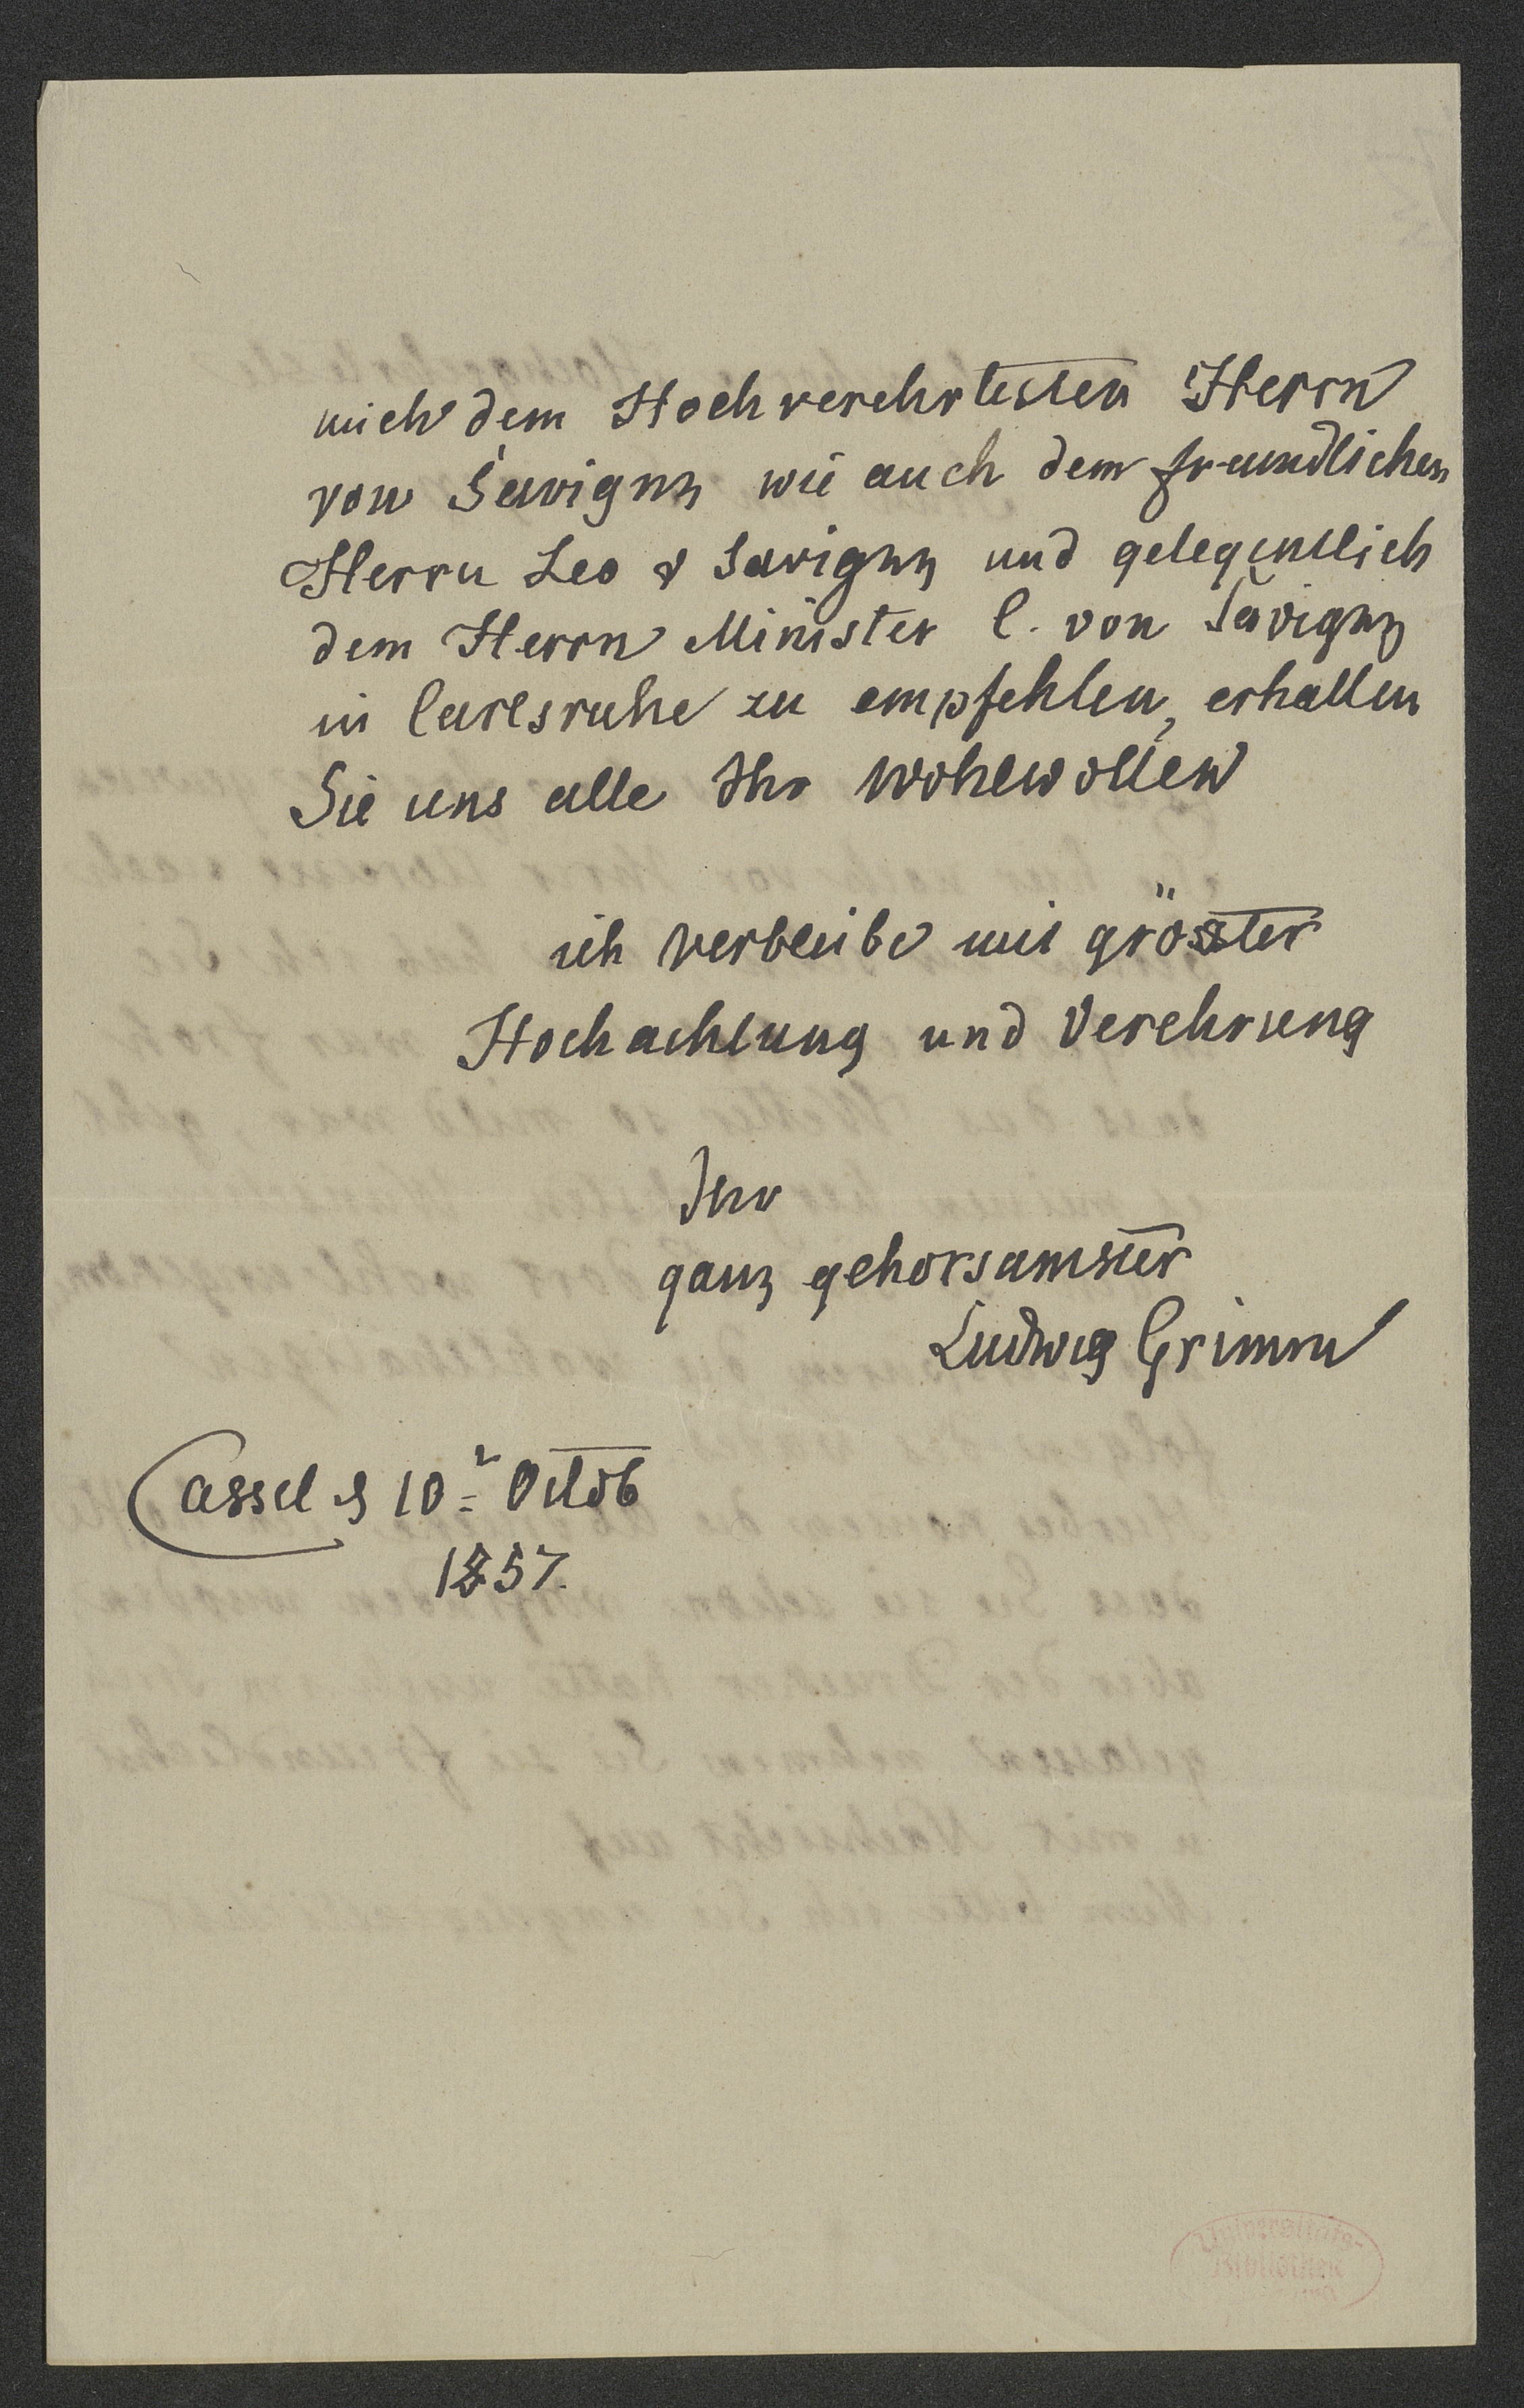 mich dem Hochverehrtesten Herrn
von Savigny wie auch dem freundlichen
Herrn Leo v Savigny und gelegentlich
dem Herrn Minister C. von Savigny
in Carlsruhe zu empfehlen, erhalten
Sie uns alle Ihr Wohlwollen
ich verbleibe mit gröster
Hochachtung und Verehrung
Ihr
ganz gehorsamster
Ludwig Grimm
Cassel d 10r Octob
1857.
Universitäts-
Bibliothek